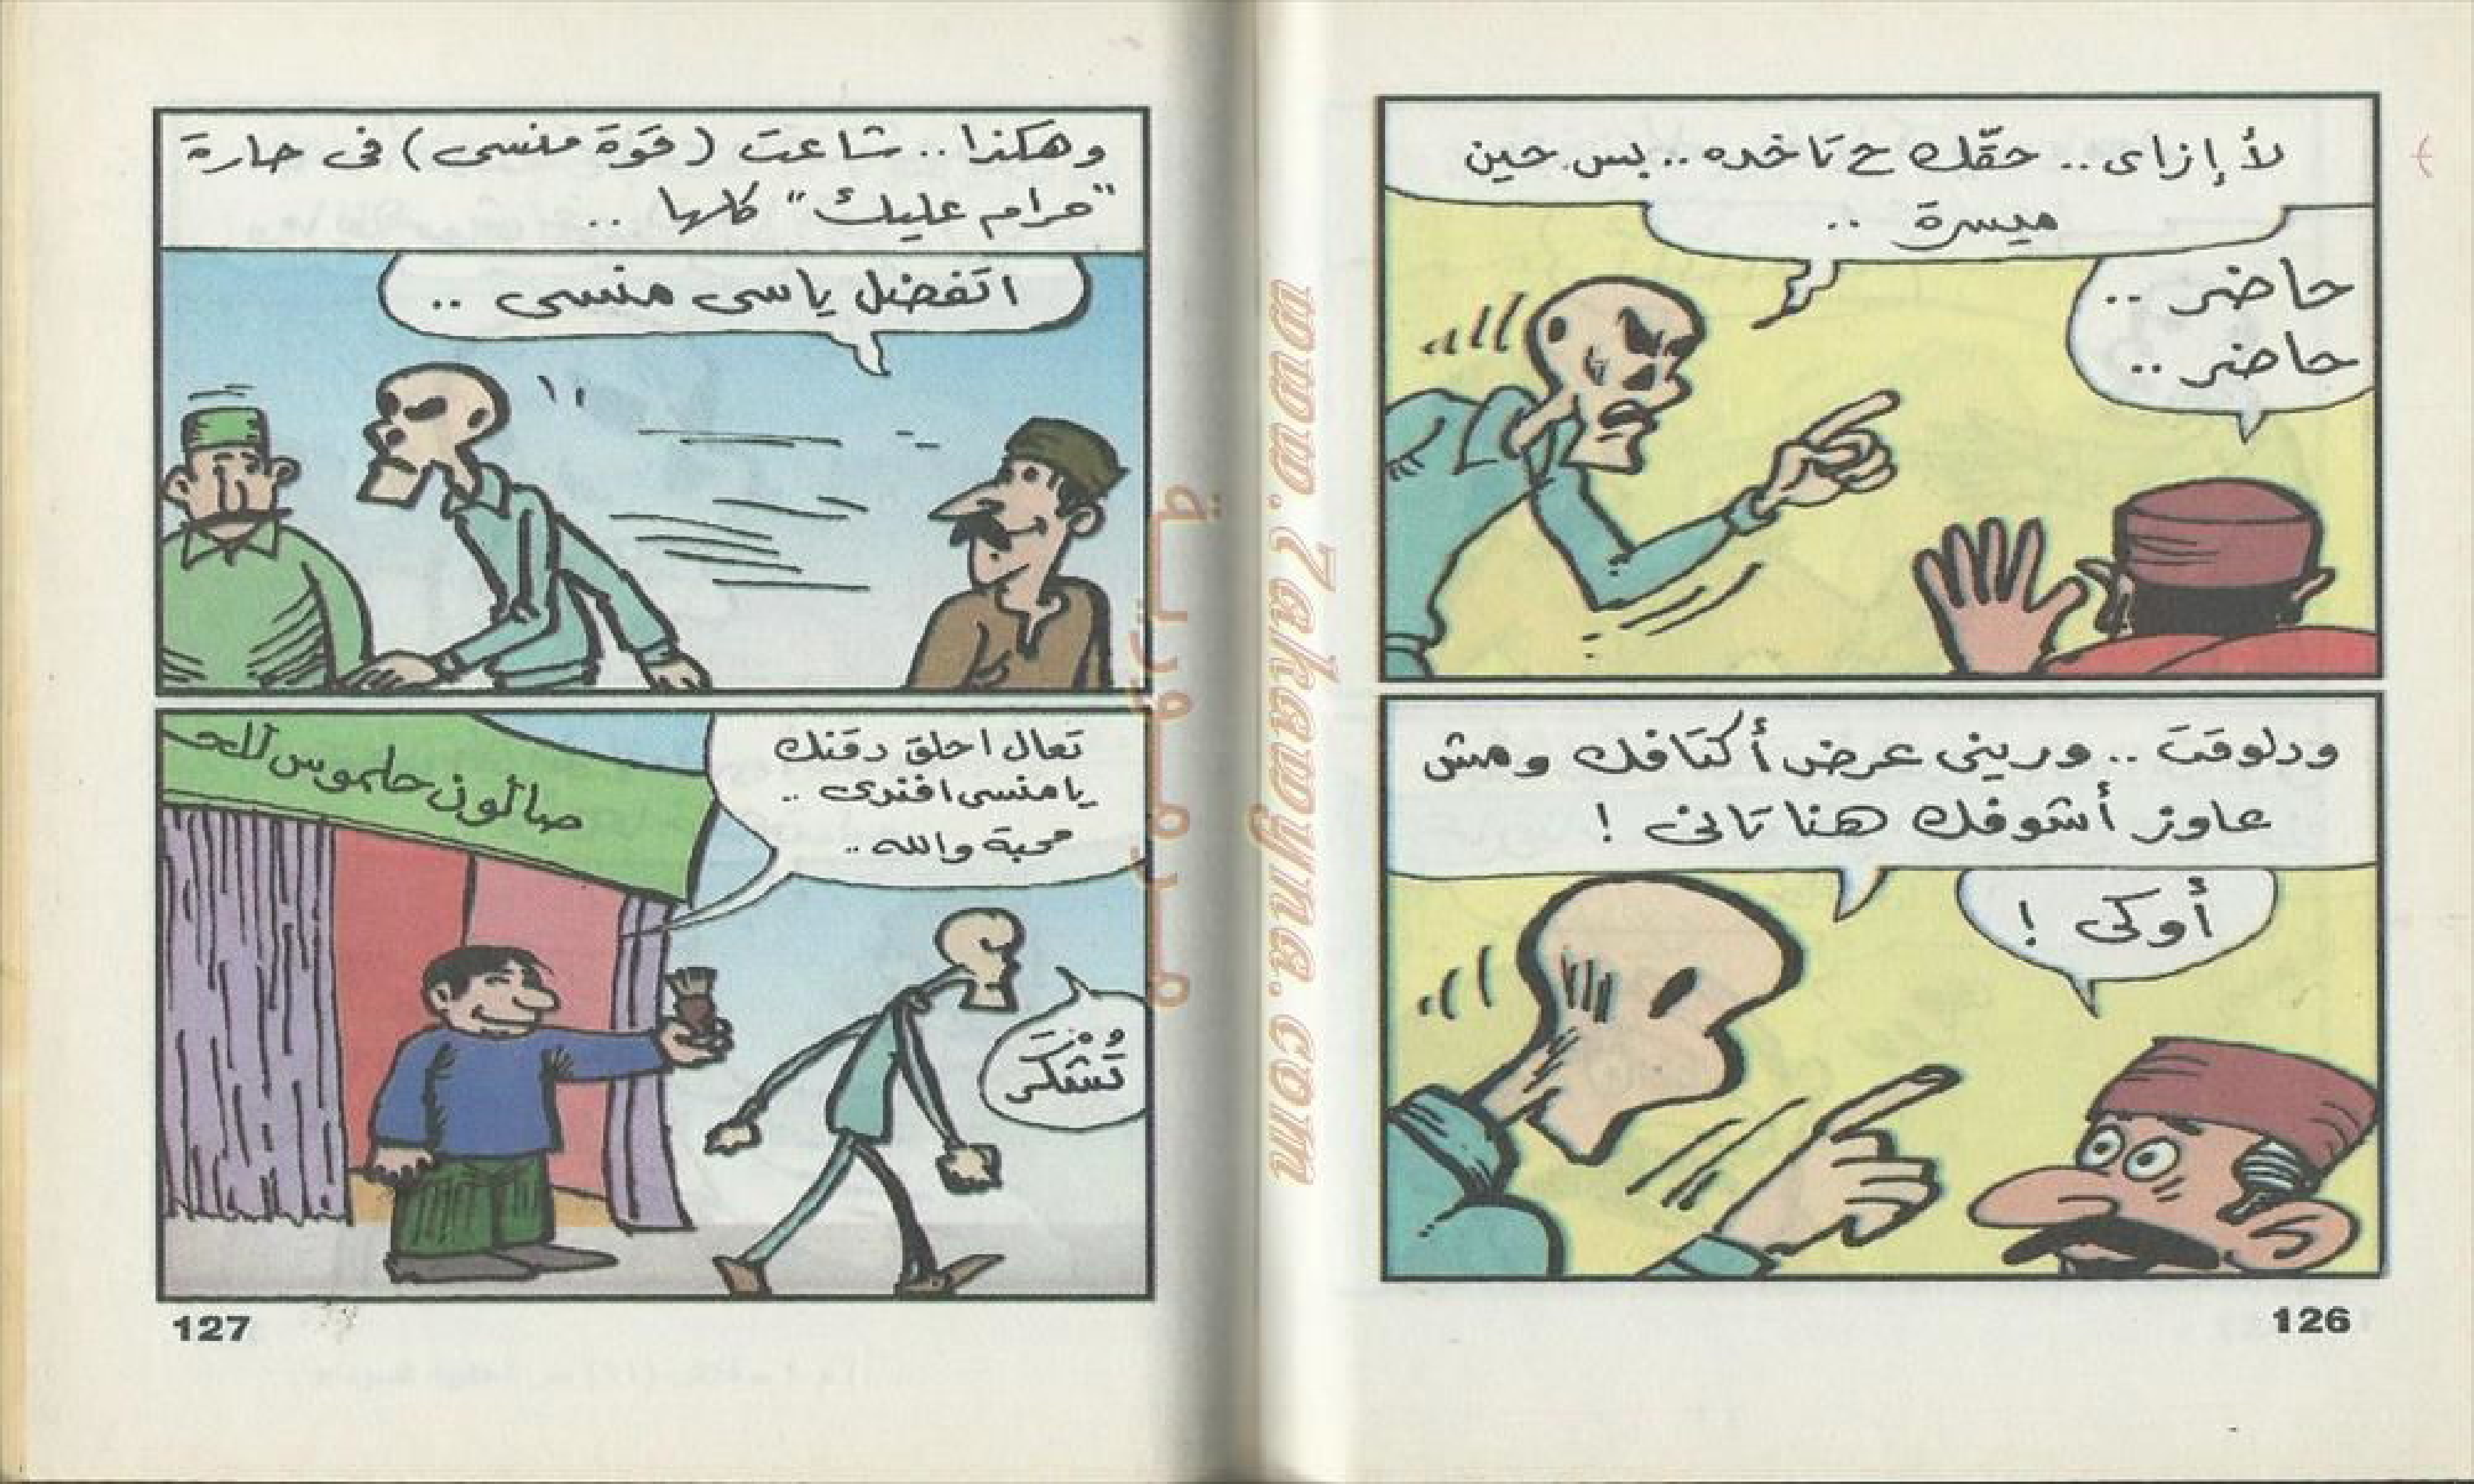 لأ إزاى .. حقّك ح تاخده .. بس حين
ميسرة ..
حاضر ..
حاضر ..
ودلوقت .. ورينى عرض أكتافك ومش
عاوز أشوفك هنا تانى !
أوكى !
126
وهكذا .. شاعت (قوة منسى) فى حارة
"حرام عليك" كلها ..
اتفضل ياسى منسى ..
صالون حلموس للحـ
تعال احلق دقنك
يا منسى افندى ..
محبة والله ..
تُشكر
127
www.Zakawyna.com